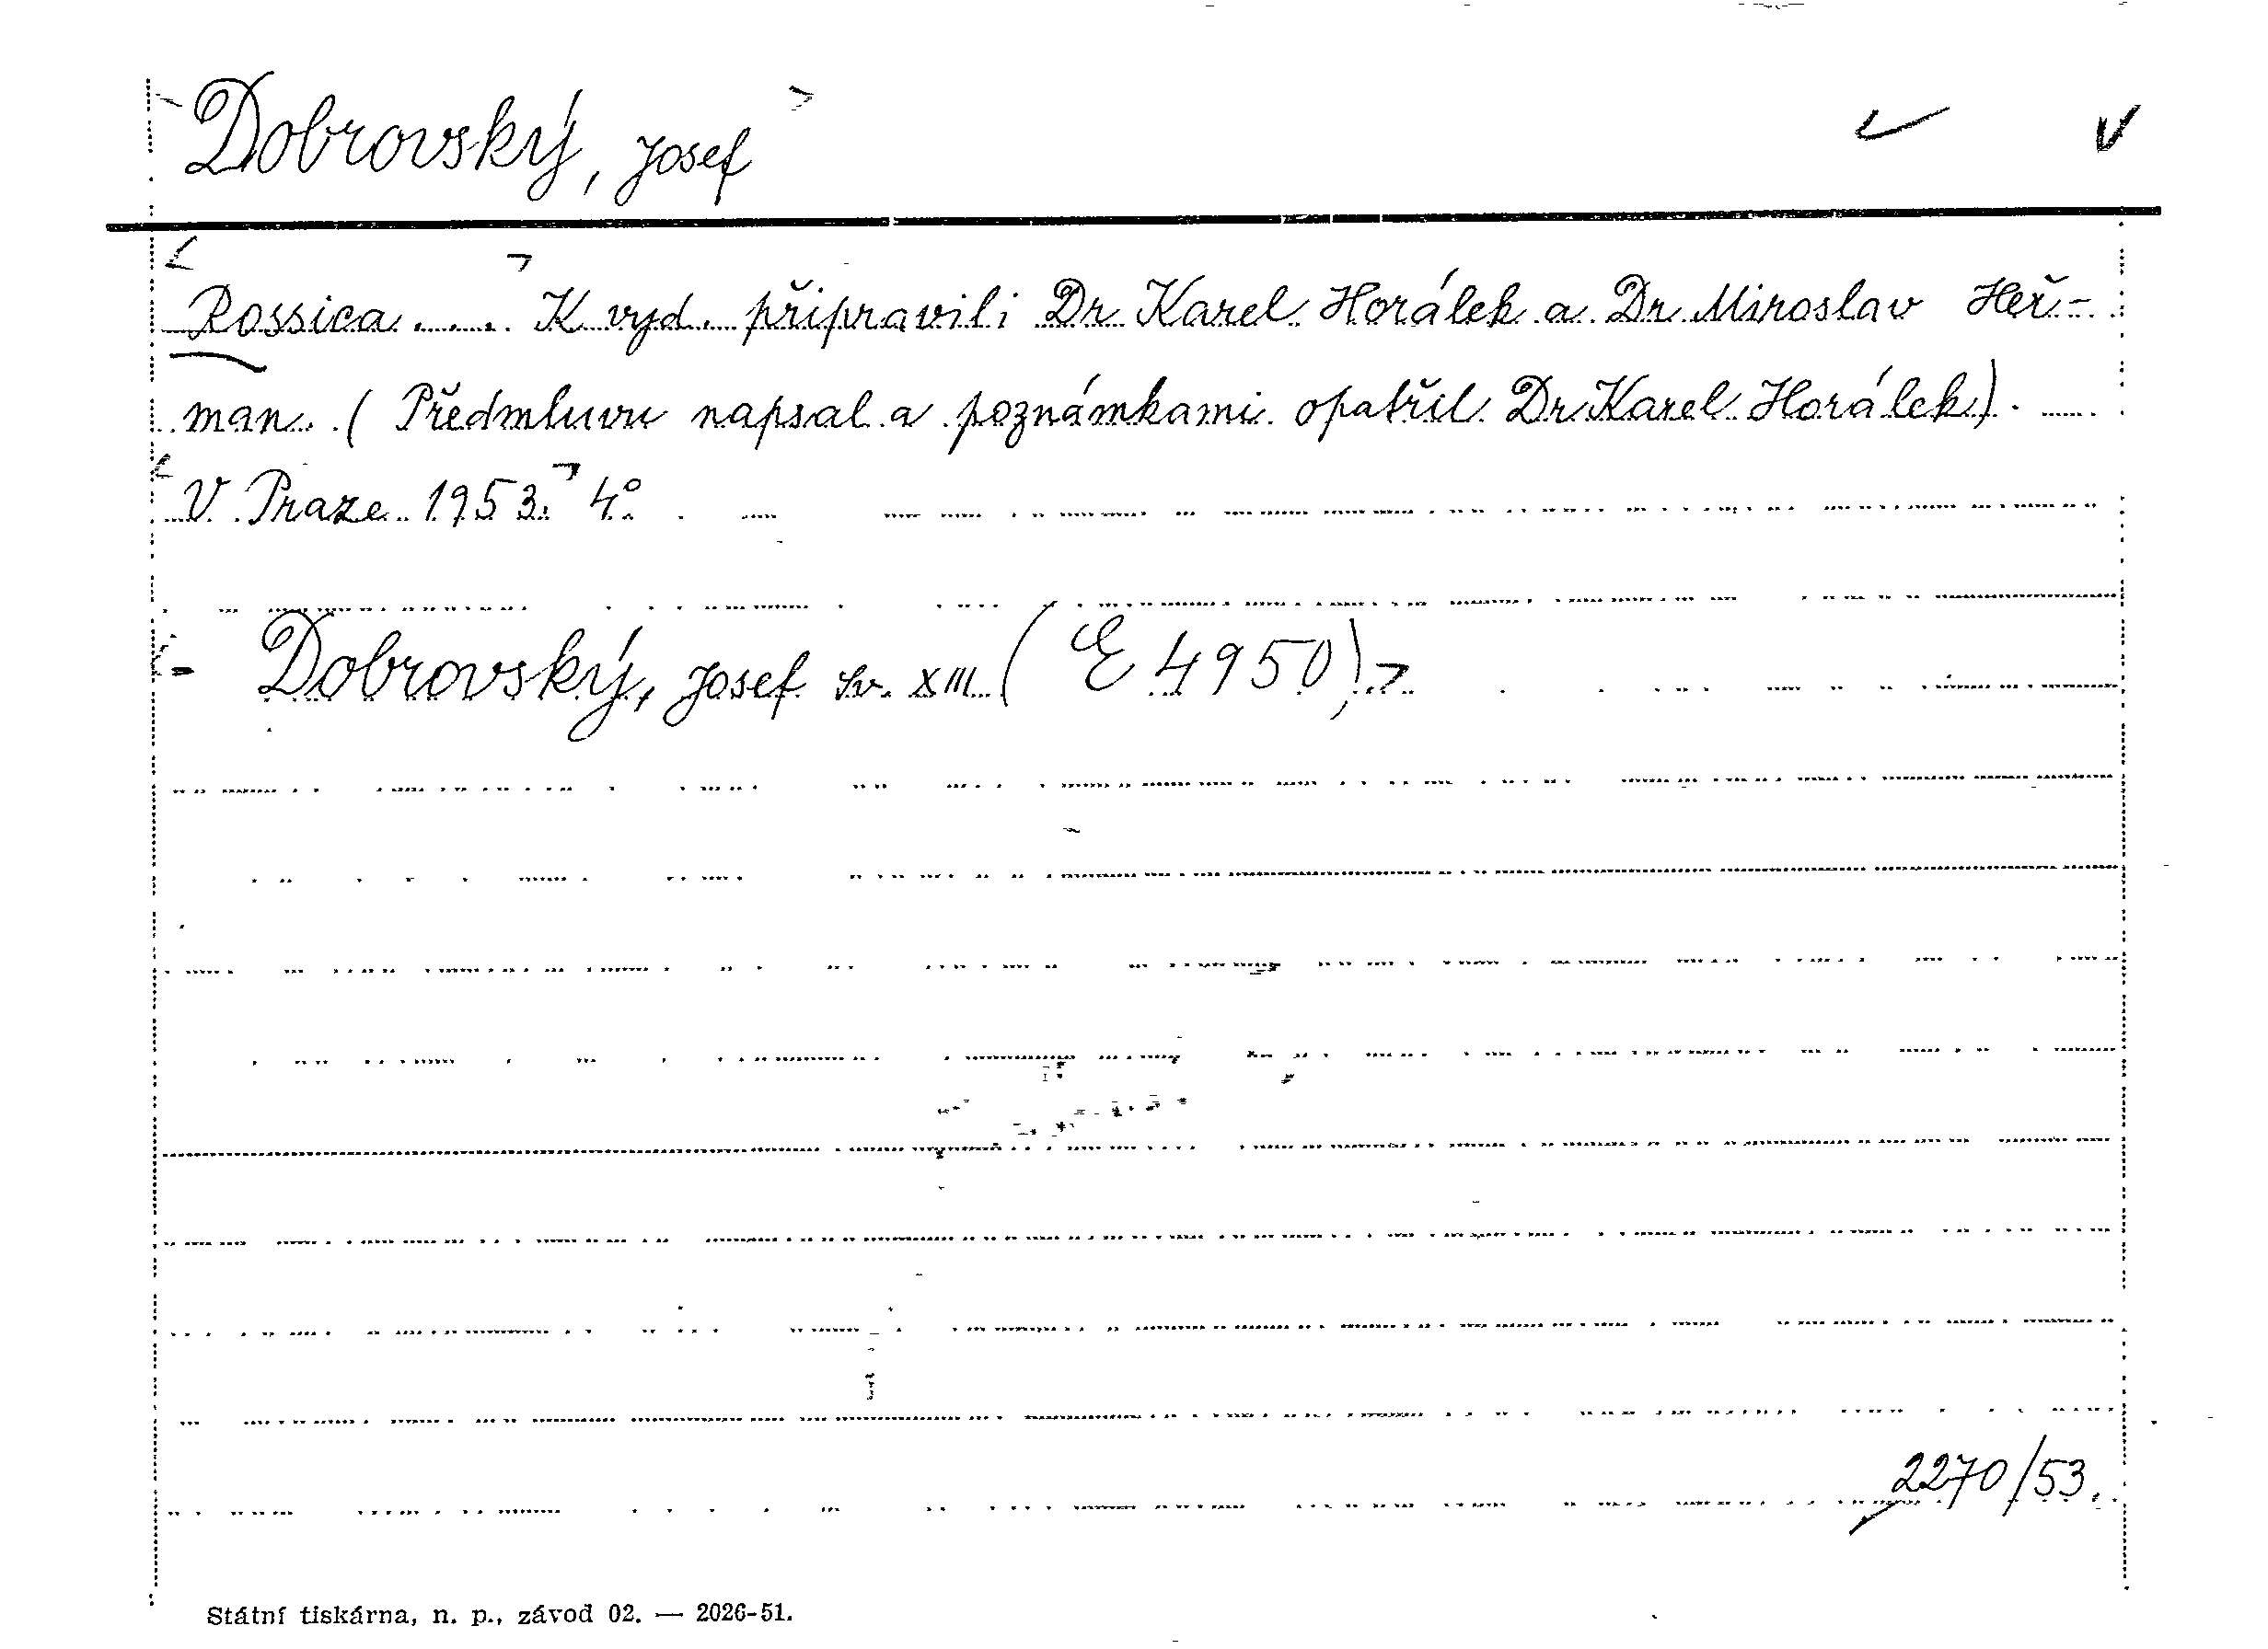 Dobrovský, Josef
Rossica.... K vyd. připravili Dr Karel Horálek a Dr Miroslav Heř-
man. (Předmluvu napsal a poznámkami opatřil Dr Karel Horálek).
V Praze 1953. 4°
= Dobrovský, Josef sv. XIII (E 4950)
2270/53.
Státní tiskárna, n. p., závod 02. — 2026-51.